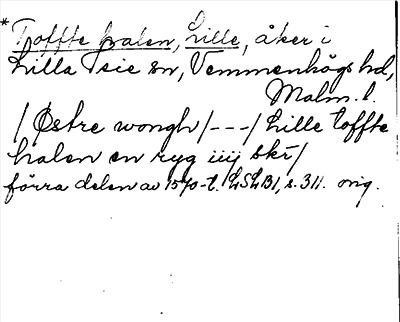 *Toffte halen, Lille, åker i
Lilla Isie sn, Vemmenhögs hd,
Malm. l.
/Østre wongh/---/Lille toffte
halen en ryg iiij skr/
förra delen av 1570-t. LSLB1, s. 311. orig.